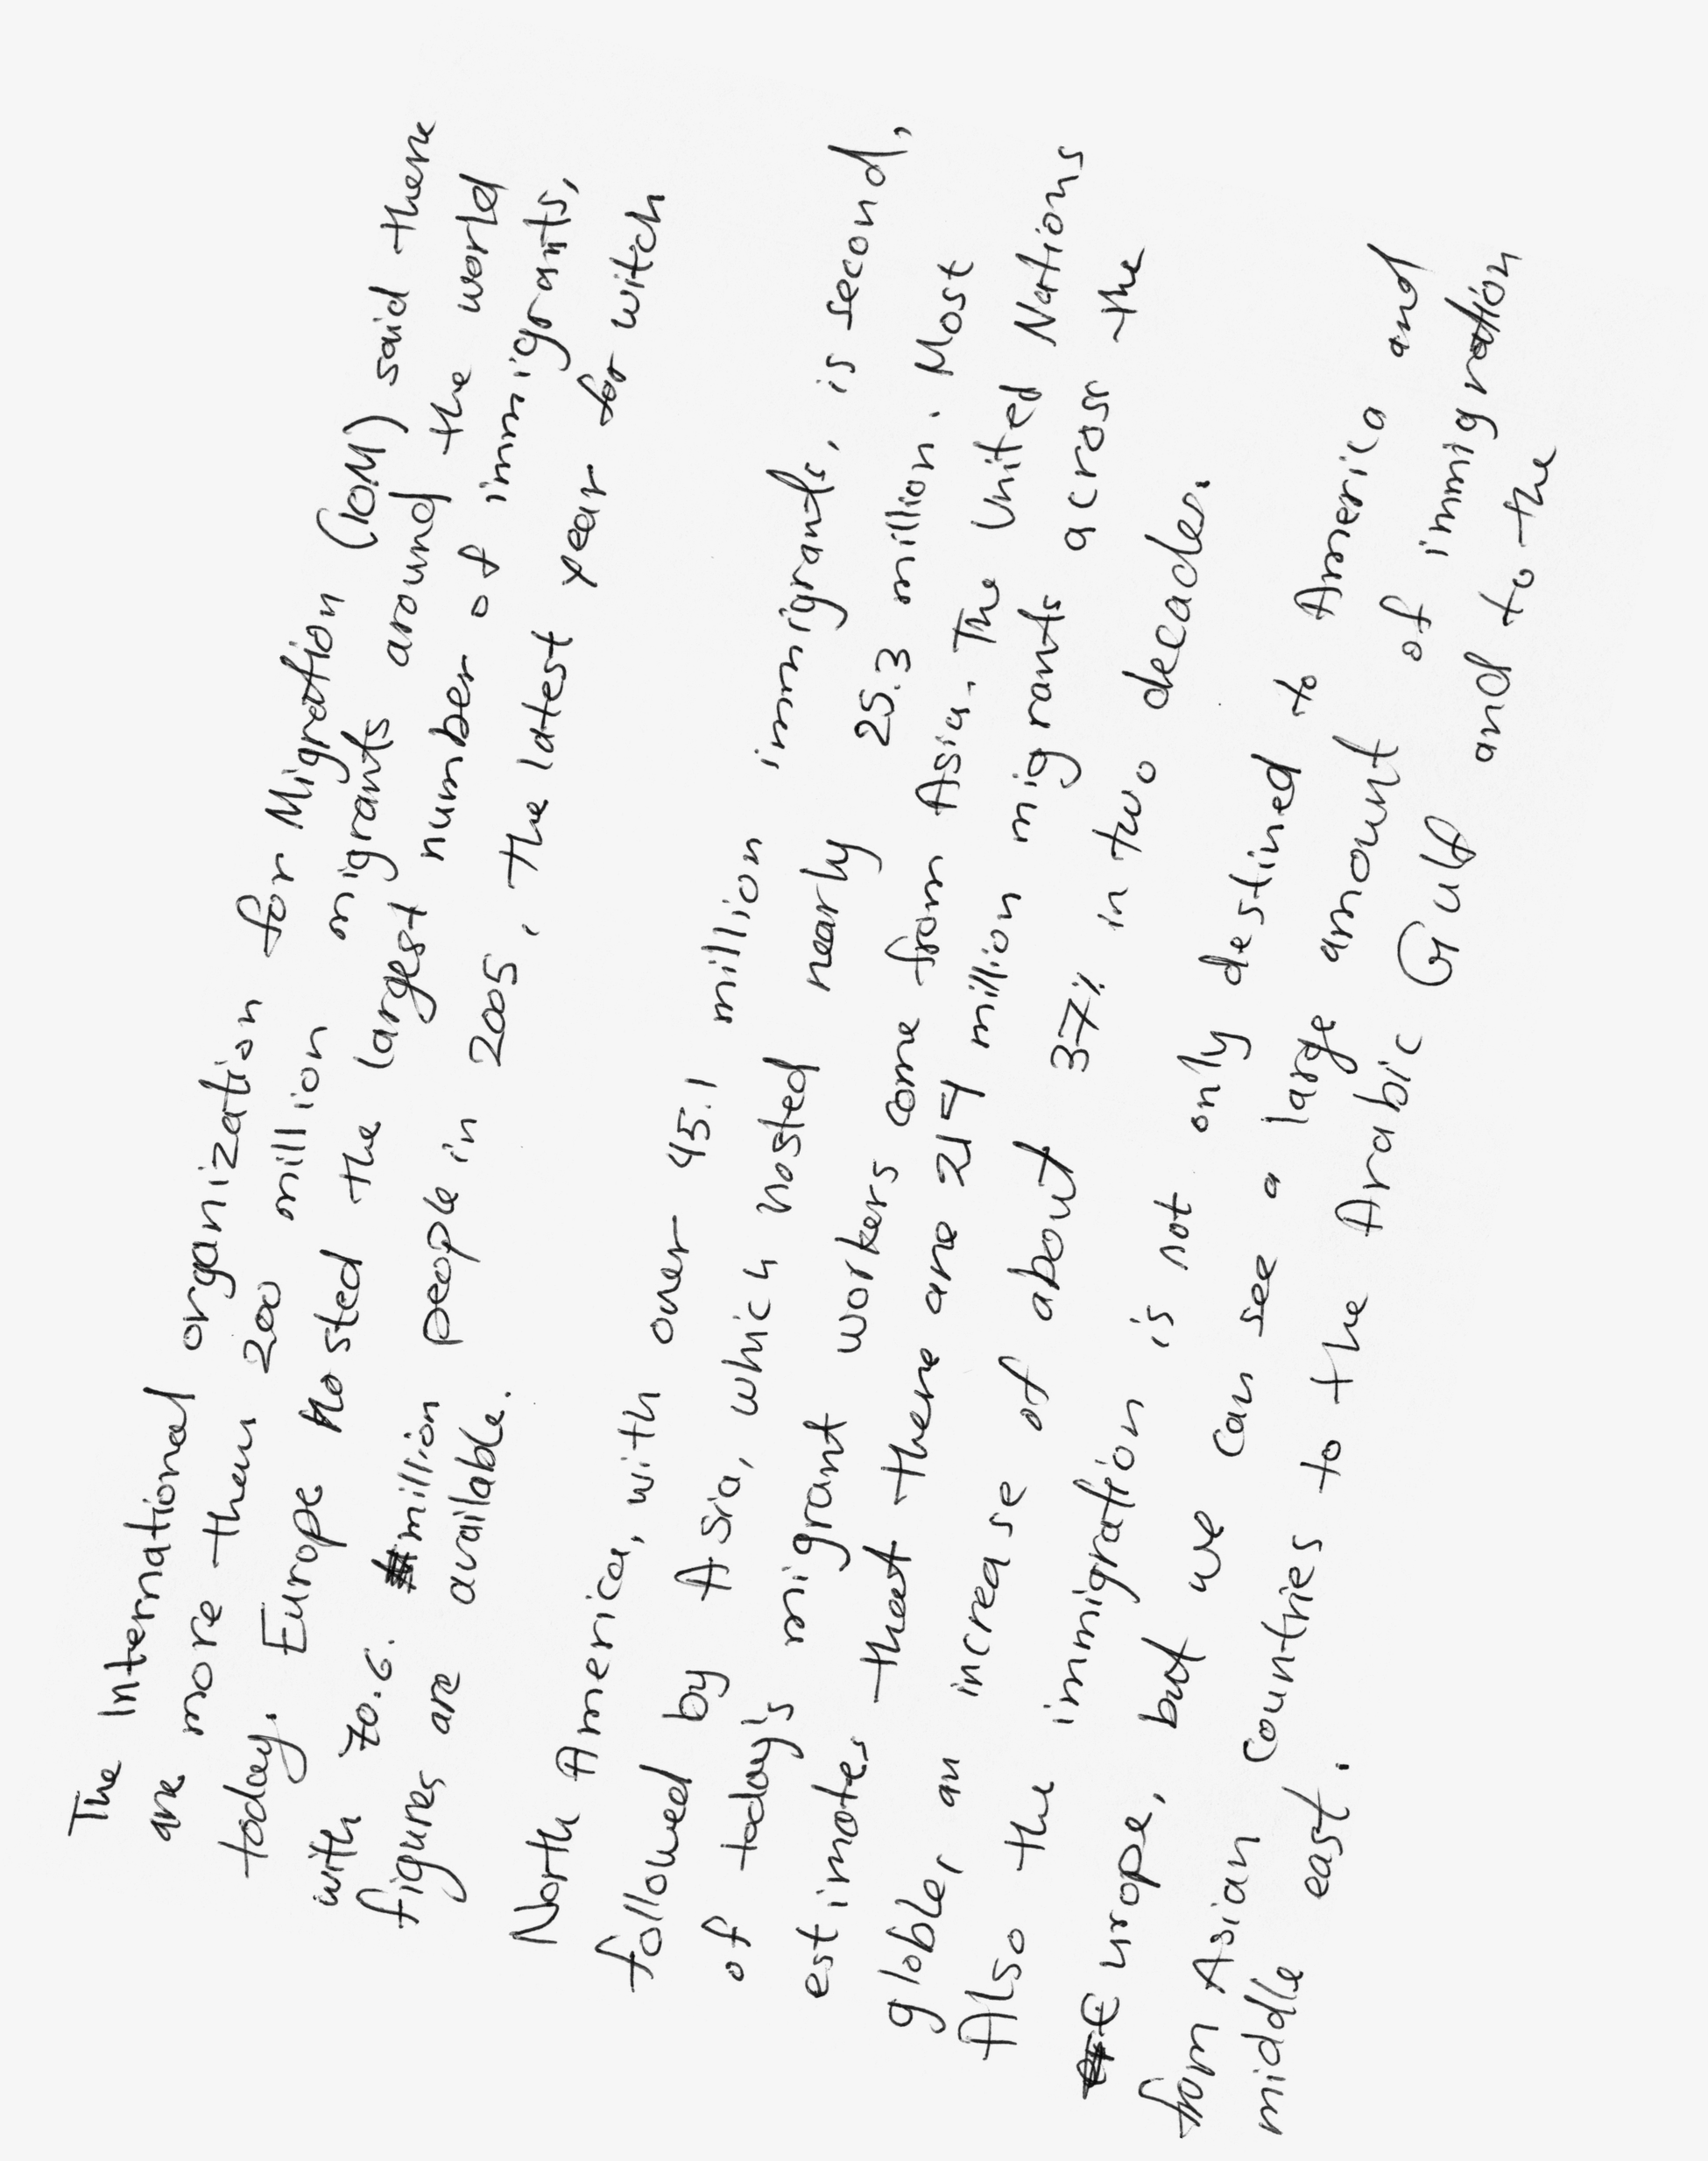 The International organization for Migration (IOM) said there
are more then 200 million migrants around the world
today. Europe Hosted the largest number of immigrants,
with 70.6. million people in 2005, the latest year for witch
figures are available.
North America, with over 45.1 million immigrants, is second,
followed by Asia, which hosted nearly 25.3 million. Most
of today's migrant workers come from Asia. The United Nations
estimates that there are 214 million migrants across the
globle, an increase of about 37% in two decades.
Also the immigration is not only destined to America and
Europe, but we can see a large amount of immigration
from Asian countries to the Arabic Gulf and to the
middle east.